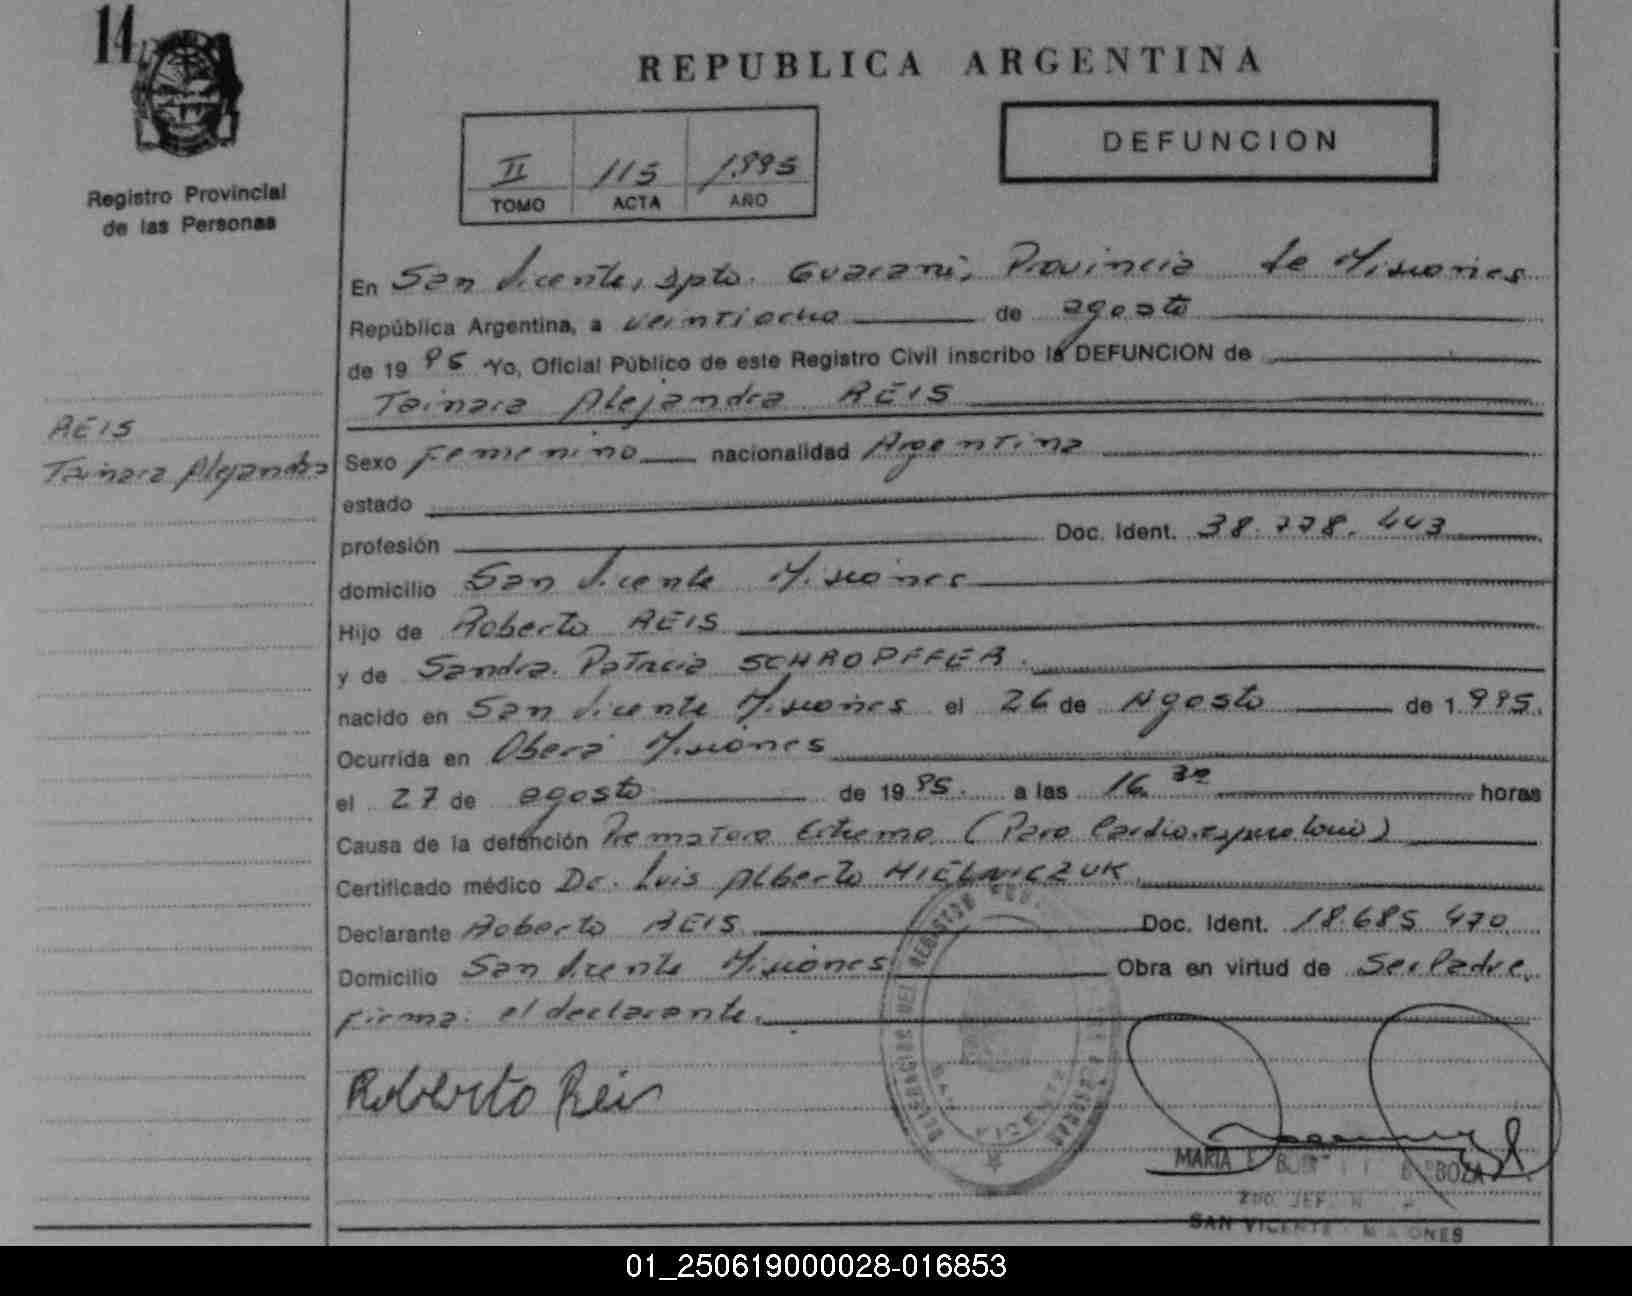 14
REPUBLICA ARGENTINA
II 115 1.995
TOMO ACTA AÑO
DEFUNCION
Registro Provincial
de las Personas
En San Vicente, dpto. Guaraní, Provincia de Misiones
República Argentina, a veintiocho de agosto
de 19 95 Yo, Oficial Público de este Registro Civil inscribo la DEFUNCION de
Tainara Alejandra REIS
REIS
Tainara Alejandra
Sexo Femenino nacionalidad Argentina
estado
profesión Doc. Ident. 38.778.443
domicilio San Vicente Misiones
Hijo de Roberto REIS
y de Sandra Patricia SCHROPFFER.
nacido en San Vicente Misiones el 26 de Agosto de 1.995.
Ocurrida en Oberá Misiones
el 27 de agosto de 19 95. a las 16. 30 horas
Causa de la defunción Prematuro Extremo (Paro Cardiorespiratorio)
Certificado médico Dr. Luis Alberto MIELNICZUK.
Declarante Roberto REIS Doc. Ident. 18.685.470
Domicilio San Vicente Misiones Obra en virtud de Ser Padre.
Firma: el declarante.
Roberto Reis
DELEGACION DEL REGISTRO
SAN VICENTE
MARIA BARBOZA
SAN VICENTE - MISIONES
01_250619000028-016853